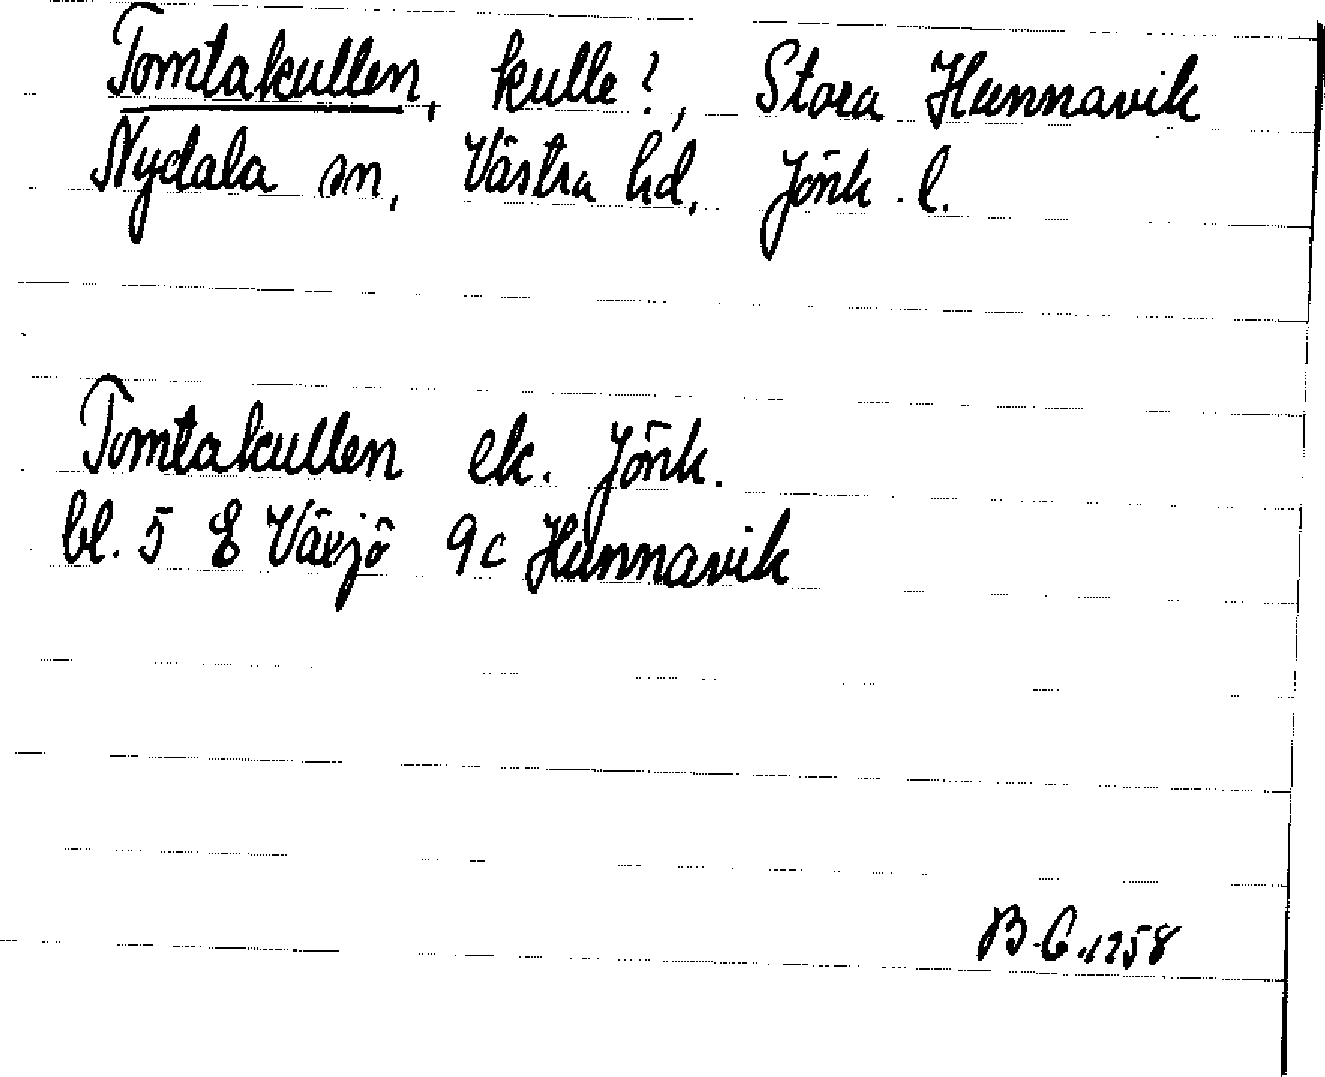 Tomtakullen, kulle?, Stora Hunnavik
Nydala sn, Västra hd, Jönk. l.
Tomtakullen ek. Jönk.
bl. 5 E Växjö 9c Hunnavik